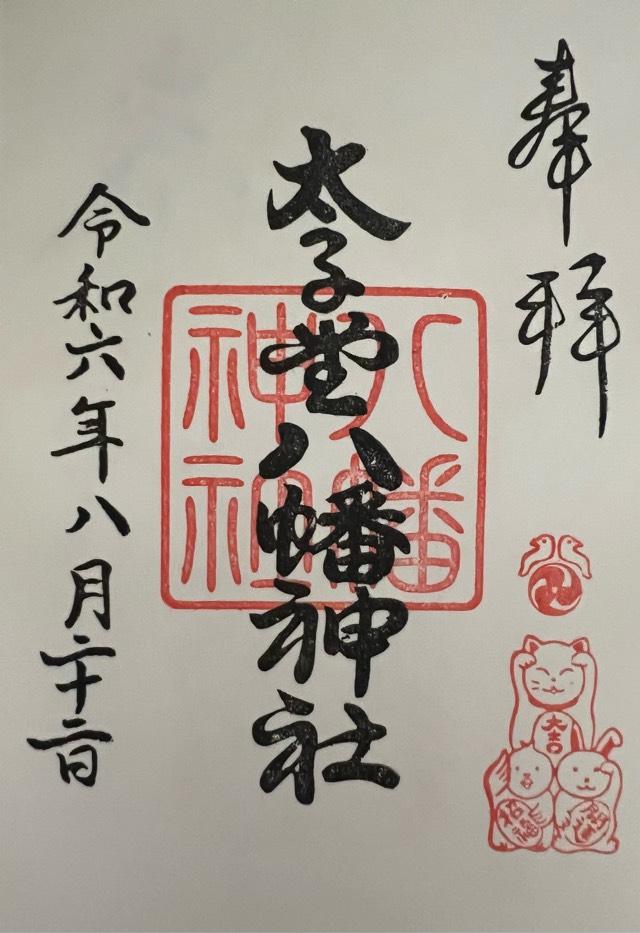 奉拝
太子堂八幡神社
八幡
神社
大吉
令和六年八月二十二日